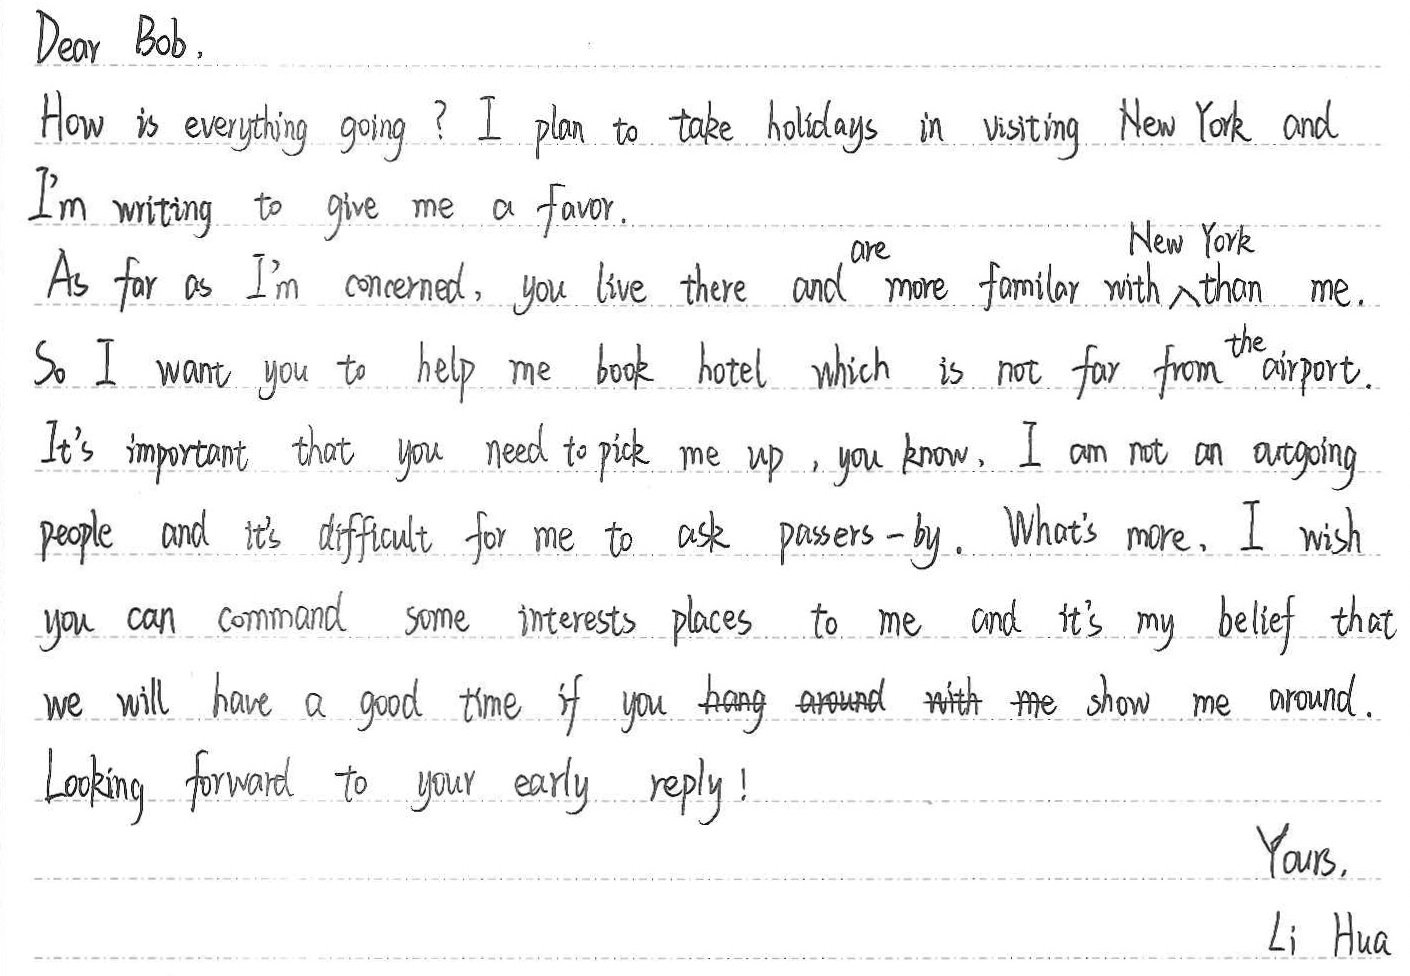 Dear Bob,
How is everything going? I plan to take holidays in visiting New York and
I'm writing to give me a favor.
As far as I'm concerned, you live there and are more familar with New York than me.
So I want you to help me book hotel which is not far from the airport.
It's important that you need to pick me up, you know, I am not an outgoing
people and it's difficult for me to ask passers-by. What's more, I wish
you can command some interests places to me and it's my belief that
we will have a good time if you hang around with me show me around.
Looking forward to your early reply!
Yours,
Li Hua